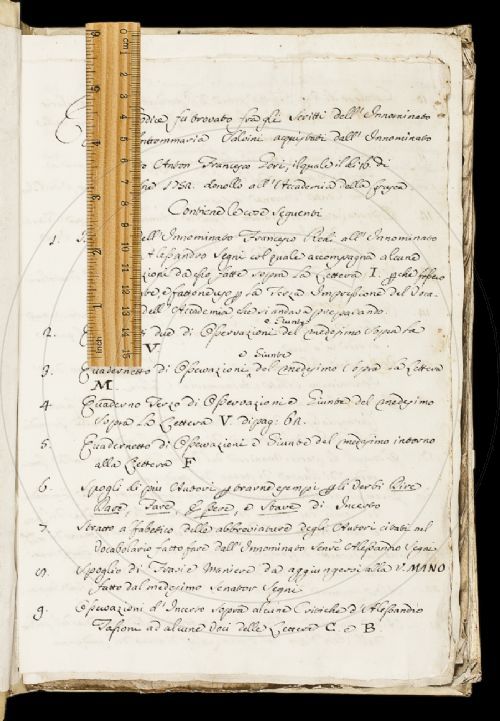 odice fu trovato fra gli Scritti dell' Innominato
Antonmaria Salvini acquistati dall' Innominato
Anton Francesco Gori, il quale il dì 16. di
donollo all' Accademia della Crusca
Contiene le cose seguenti
1. ell' Innominato Francesco Redi all' Innominato
Alessandro Segni col quale accompagna alcune
zioni da esso fatte sopra la Lettera I.
la Terza Impressione del Voca-
dell' Accademia che si andava preparando.
e Giunte
2. due di Osservazioni del medesimo Sopra la
V
e Giunte
3. Quadernetto di Osservazioni del medesimo sopra la Lettera
M.
4. Quaderno Terzo di Osservazioni e Giunte del medesimo
Sopra la Lettera V. di pag: 62.
5. Quadernetto di Osservazioni e Giunte del medesimo intorno
alla Lettera F
6. Spogli di più Autori p trarne esempi p gli Verbi Dire
Dare, Fare, e Stare di Incerto
7. Stratto Alfabetico delle abbreviature degli Autori citati nel
Vocabolario fatto fare dall' Innominato Senre Alessandro Segni
8. Spoglio di Frasi e Maniere da aggiungersi alla V. MANO
fatto dal medesimo Senator Segni
9. Osservazioni d' Incerto Sopra alcune Critiche d' Alessandro
Tassoni ad alcune Voci delle Lettere C. e B.
0 cm 1 2 3 4 5 6 7 8 9 10 11 12 13 14 15
inch 1 2 3 4 5 6